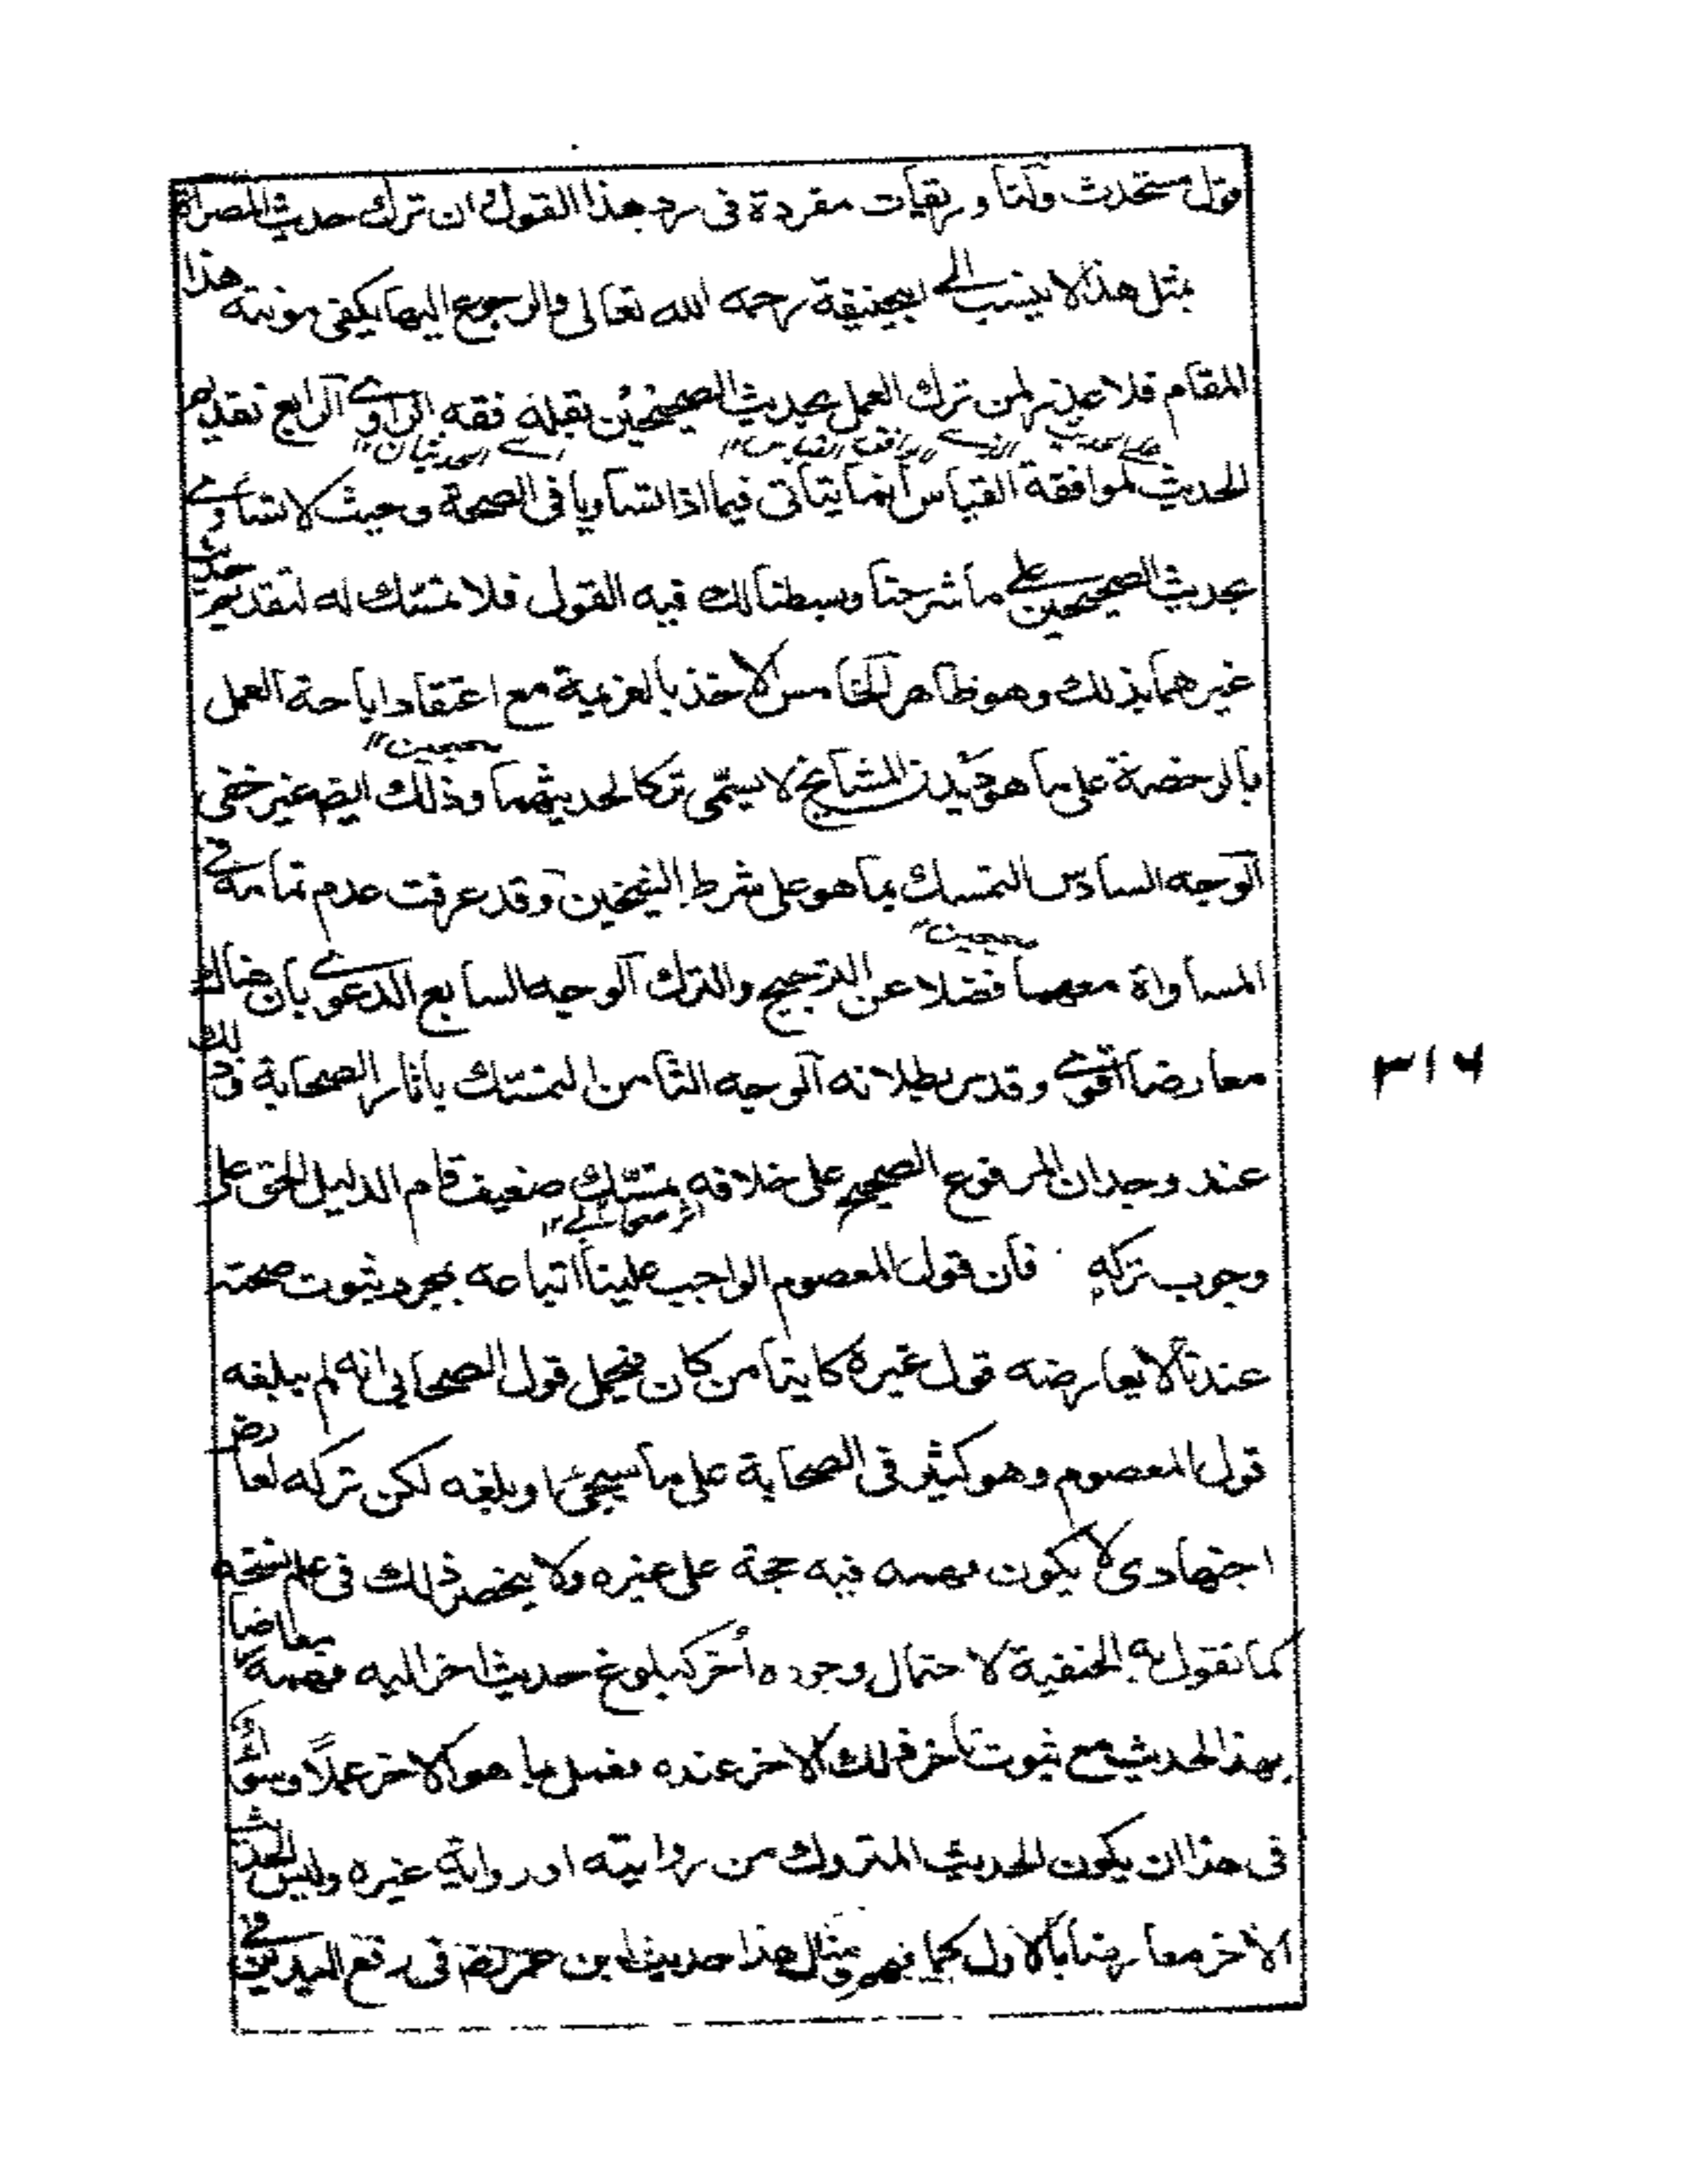 قول مستحدث ولنا وريقات مفردة فى رد هذا القول ان ترك حديث المصراة
بمثل هذا لا ينسب الى ابيحنيفة رحمه الله تعالى والرجوع اليها يكفى مونته هذا
المقام فلا عذر لمن ترك العمل بحديث الصحيحين بقلة فقه الراوى الرابع تقديم
على حديث الذى يوافق القياس اى الحديثان
الحديث لموافقة القياس انما يتاتى فيما اذا تساويا فى الصحة وحيث لا تساوى
بحديث الصحيحين على ما شرحنا وبسطنا لك فيه القول فلا تمسك له لتقديم حديث
غيرهما بذلك وهو ظاهر الخامس الاخذ بالعزيمة مع اعتقاد اباحة العمل
صحيحين
بالرخصة على ما هو ديدن المشائخ لا يسمى تركا لحديثهما وذلك ايضه غير خفى
الوجه السادس التمسك بما هو على شرط الشيخين وقد عرفت عدم تمامه فى
صحيحين
المساواة معهما فضلا عن الترجيح والترك الوجه السابع الدعوى بان هناك
معارضا اقوى وقد مر بطلانه الوجه الثامن التمسك باثار الصحابة فى ذلك
عند وجدان المرفوع الصحيح على خلافه تمسك ضعيف قام الدليل الحق على
اثر صحابى
وجوب تركه فان قول المعصوم الواجب علينا اتباعه بمجرد ثبوت صحته
عندنا لا يعارضه قول غيره كاينا من كان فيحمل قول الصحابى انه لم يبلغه
قول المعصوم وهو كثير فى الصحابة على ما سيجئ او بلغه لكن تركه لعارض
اجتهادى لا يكون فهمه فيه حجة على غيره ولا ينحصر ذلك فى علم نسخه
كما تقول به الحنفية لاحتمال وجوده أخر كبلوغ حديث اخر اليه فهمه معارضا
بهذا الحديث مع ثبوت تاخر ذلك الاخر عنده فعمل بما هو الاخر عملا وسواء
فى هذا ان يكون الحديث المتروك من روايته او رواية غيره وليس الحديث
الاخر معارضا بالاول كما فهم ومثال هذا حديث ابن عمر رضه فى رفع اليدين فى
٣١٦